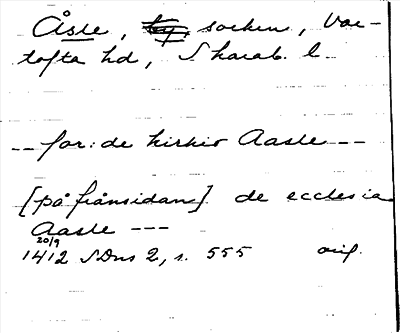 Åsle, socken, Var-
tofta hd, Skarab. l.
-- for: de kirkio Aasle ---
[på frånsidan]. de ecclesia
Aasle ---
20/9
1412 SDns 2, s. 555 orig.